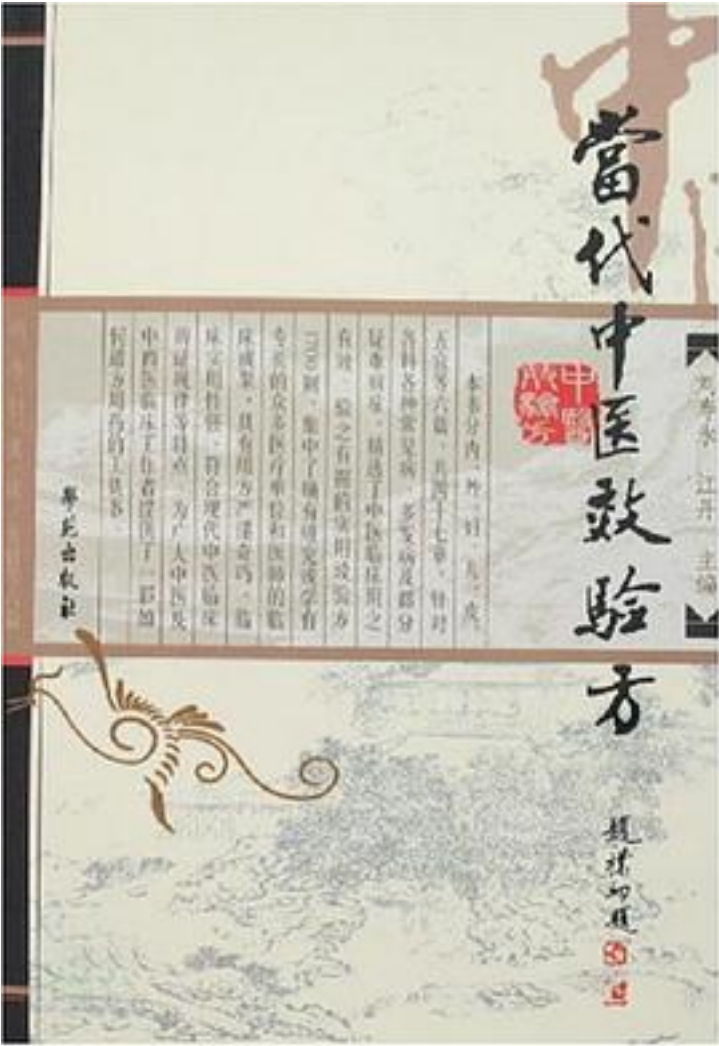 當代中医效驗方
趙樸初題
江丹 主编
本书分内、外、妇、儿、皮、
五官等六篇，共四十七章，针对
各科各种常见病、多发病及部分
疑难病症，精选了中医临床用之
有效、验之有据的实用效验方
1700则，集中了颇有研究或学有
专长的众多医疗单位和医师的临
床成果，具有组方严谨奇巧、临
床实用性强、符合现代中医临床
辨证规律等特点，为广大中医及
中西医临床工作者提供了一部如
何组方用药的工具书
學苑出版社